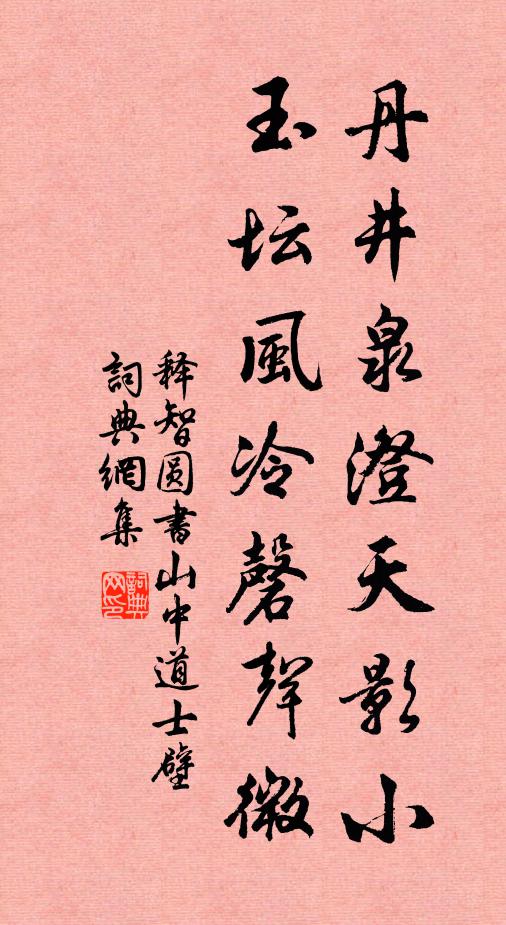 丹井泉澄天影小
玉坛風冷磬聲微
释智圆書山中道士壁
詞典網集
詞典网印